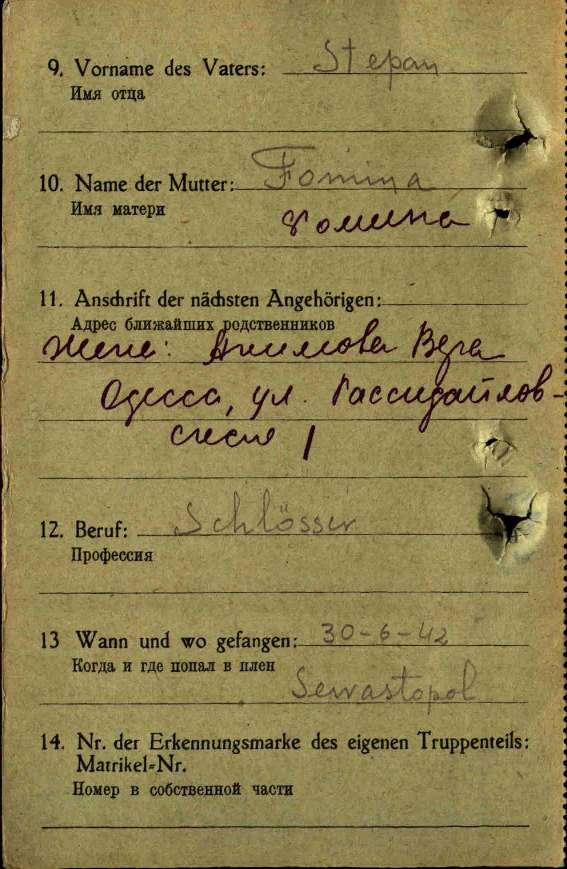 9. Vorname des Vaters: Stepan
Имя отца
10. Name der Mutter: Fomina
Имя матери Фомина
11. Anschrift der nächsten Angehörigen:
Адрес ближайших родственников
Жена: Акимова Вера
Одесса, ул.
1
12. Beruf: Schlösser
Профессия
13 Wann und wo gefangen: 30-6-42
Когда и где попал в плен
Sewastopol
14. Nr. der Erkennungsmarke des eigenen Truppenteils:
Matrikel-Nr.
Номер в собственной части